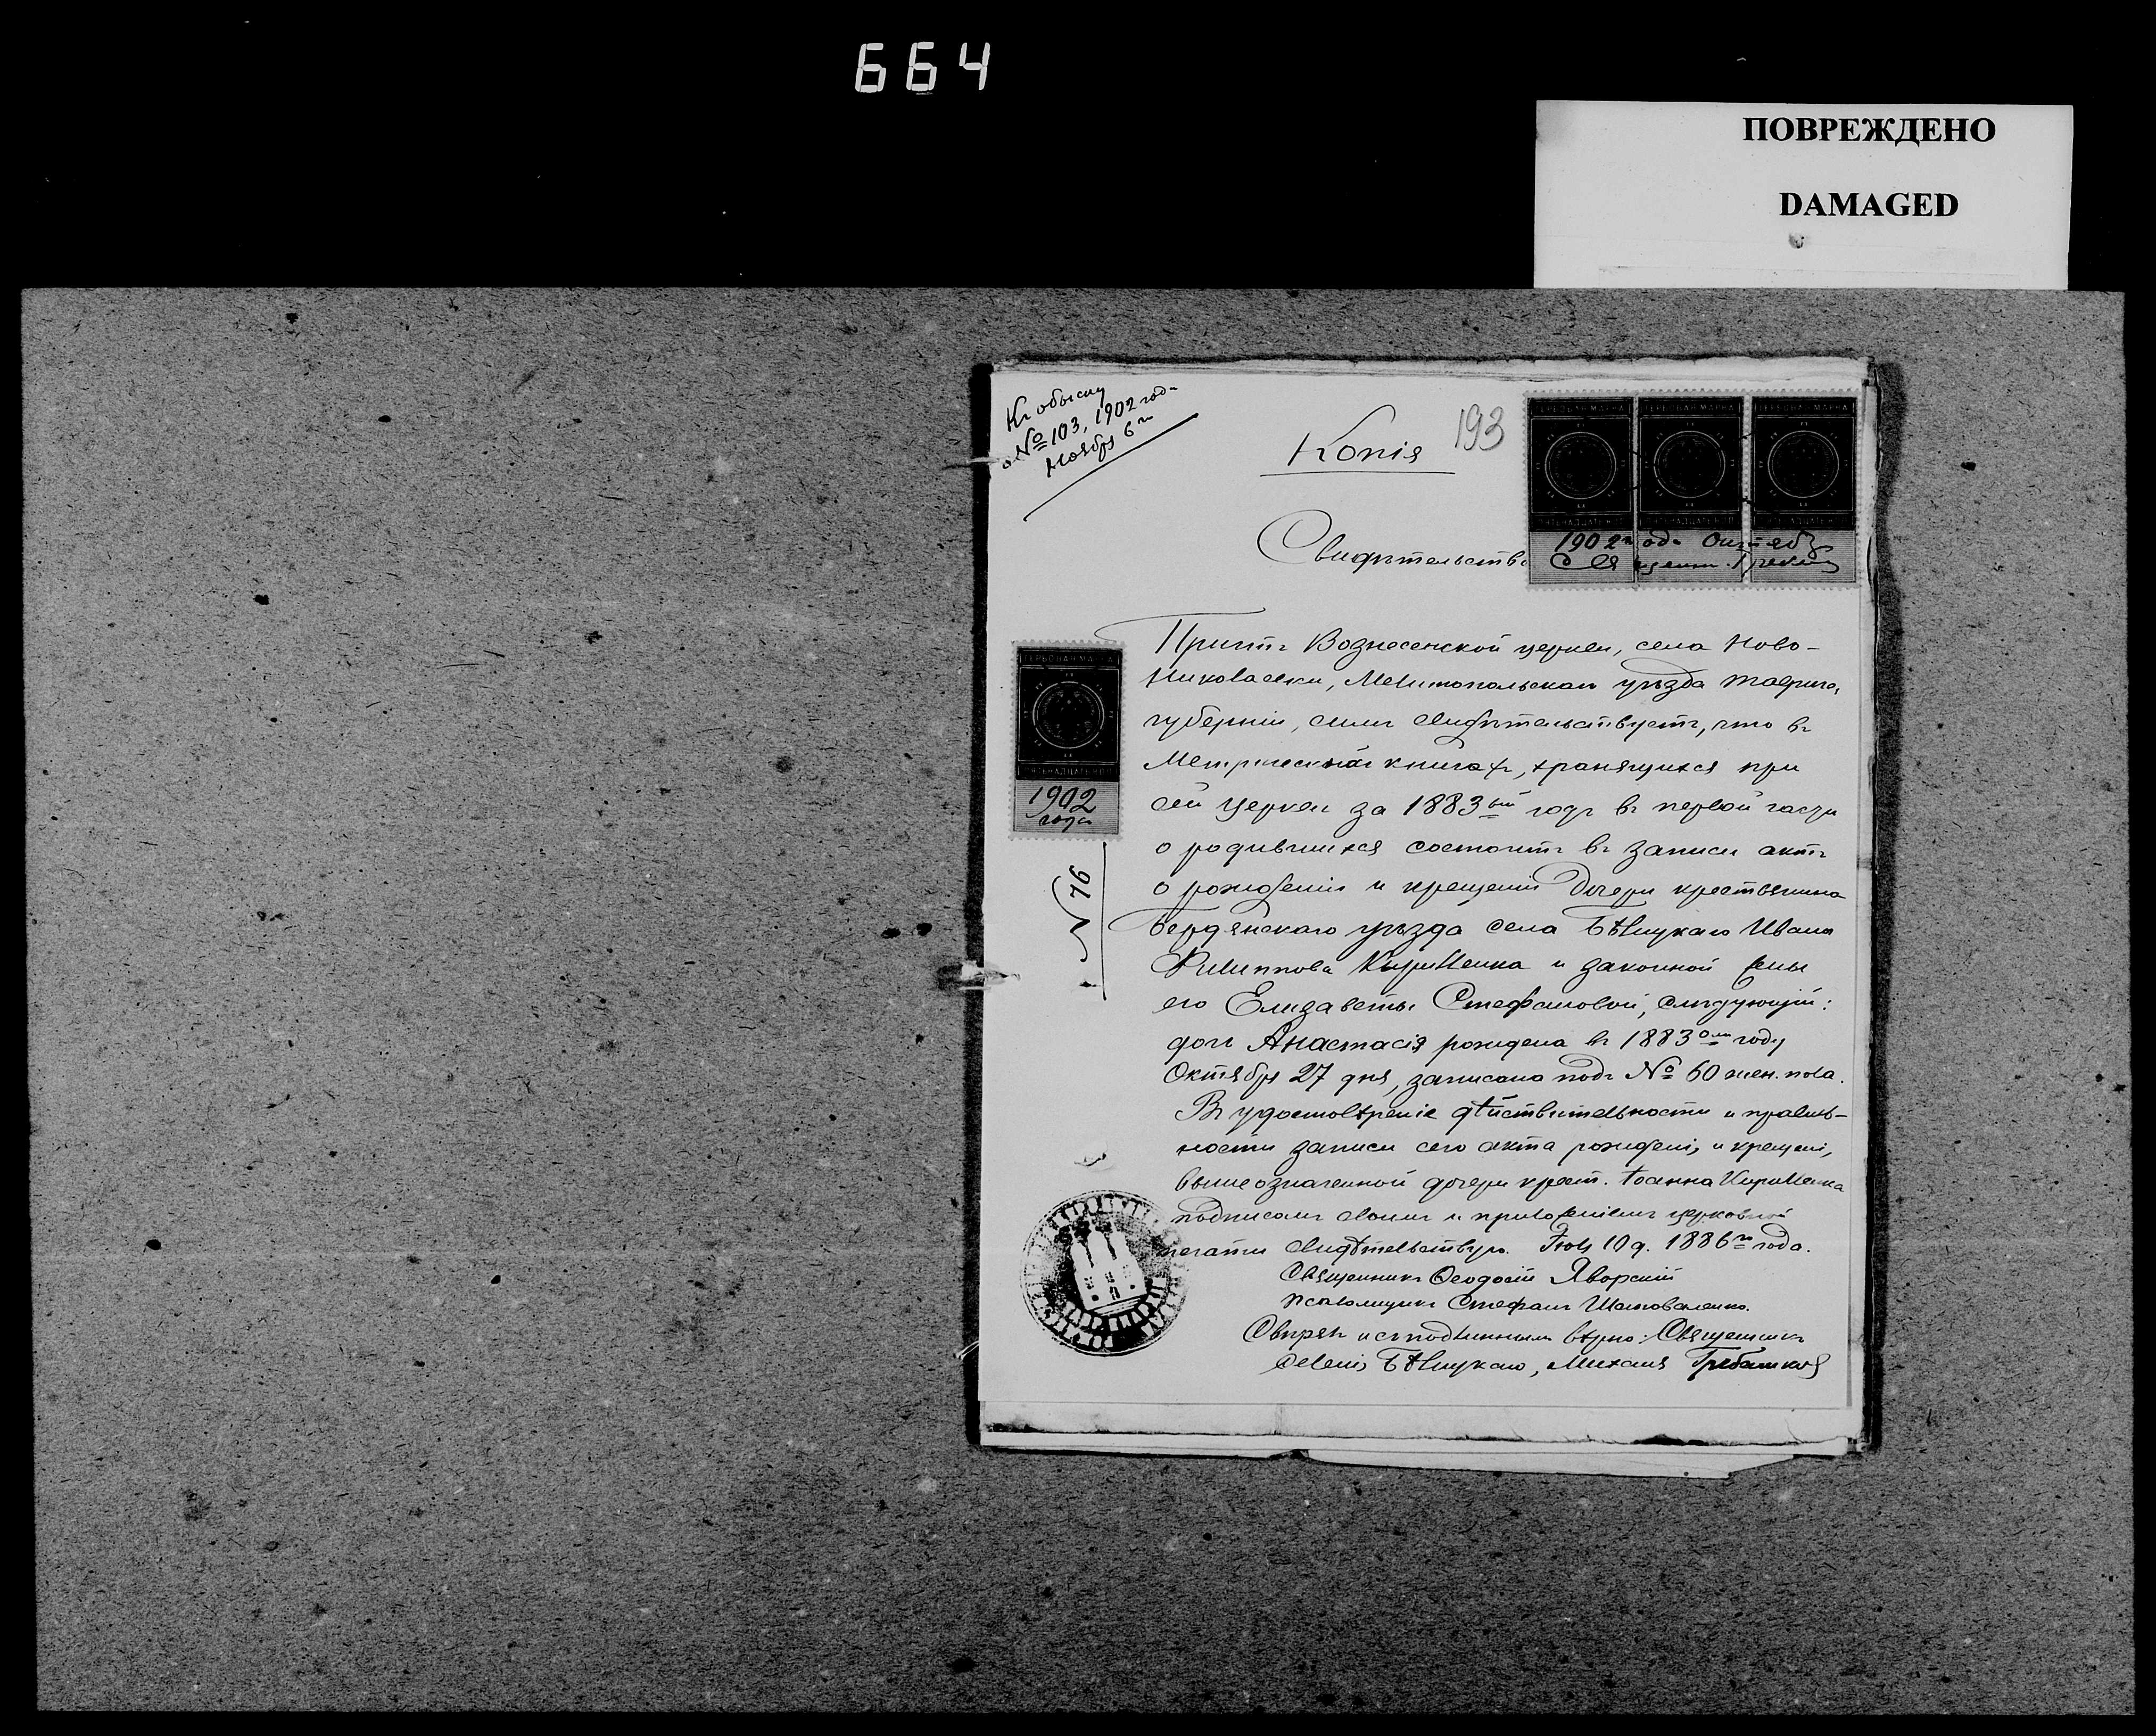 664
ПОВРЕЖДЕНО
DAMAGED
Къ обыску
№ 103, 1902 года
Ноября 6го
Копія 193
ГЕРБОВАЯ МАРКА ГЕРБОВАЯ МАРКА ГЕРБОВАЯ МАРКА
ПЯТЬНАДЦАТЬ КОП. ПЯТЬНАДЦАТЬ КОП. ПЯТЬНАДЦАТЬ КОП.
1902 года Октября
Свидѣтельство
Причтъ Вознесенской церкви, села Ново-
Николаевки, Мелитопольскаго уѣзда Таврич.
губерніи, симъ свидѣтельствуетъ, что въ
Метрическихъ книгахъ, хранящихся при
сей церкви за 1883ый годъ въ первой части
о родившихся состоитъ въ записи актъ
о рожденіи и крещеніи дочери крестьянина
Бердянскаго уѣзда села Бѣлицкаго Ивана
Филиппова Кириленка и законной жены
его Елизаветы Стефановой, слѣдующій:
дочь Анастасія рождена въ 1883омъ году
Октября 27 дня, записана подъ № 60 жен. пола.
Въ удостовѣреніе дѣйствительности и правиль-
ности записи сего акта рожденія и крещенія,
вышеозначенной дочери крест. Іоанна Кириленка
подписомъ своимъ и приложеніемъ церковной
печати свидѣтельствую. Іюль 10 д. 1886го года.
Священникъ Ѳеодосій Яворскій
Псаломщикъ Стефанъ Шаповаленко.
Свѣрялъ и съ подлиннымъ вѣрно: Священникъ
селенія Бѣлицкаго, Михаилъ
ГЕРБОВАЯ МАРКА
ПЯТЬНАДЦАТЬ КОП.
1902
года
№ 76